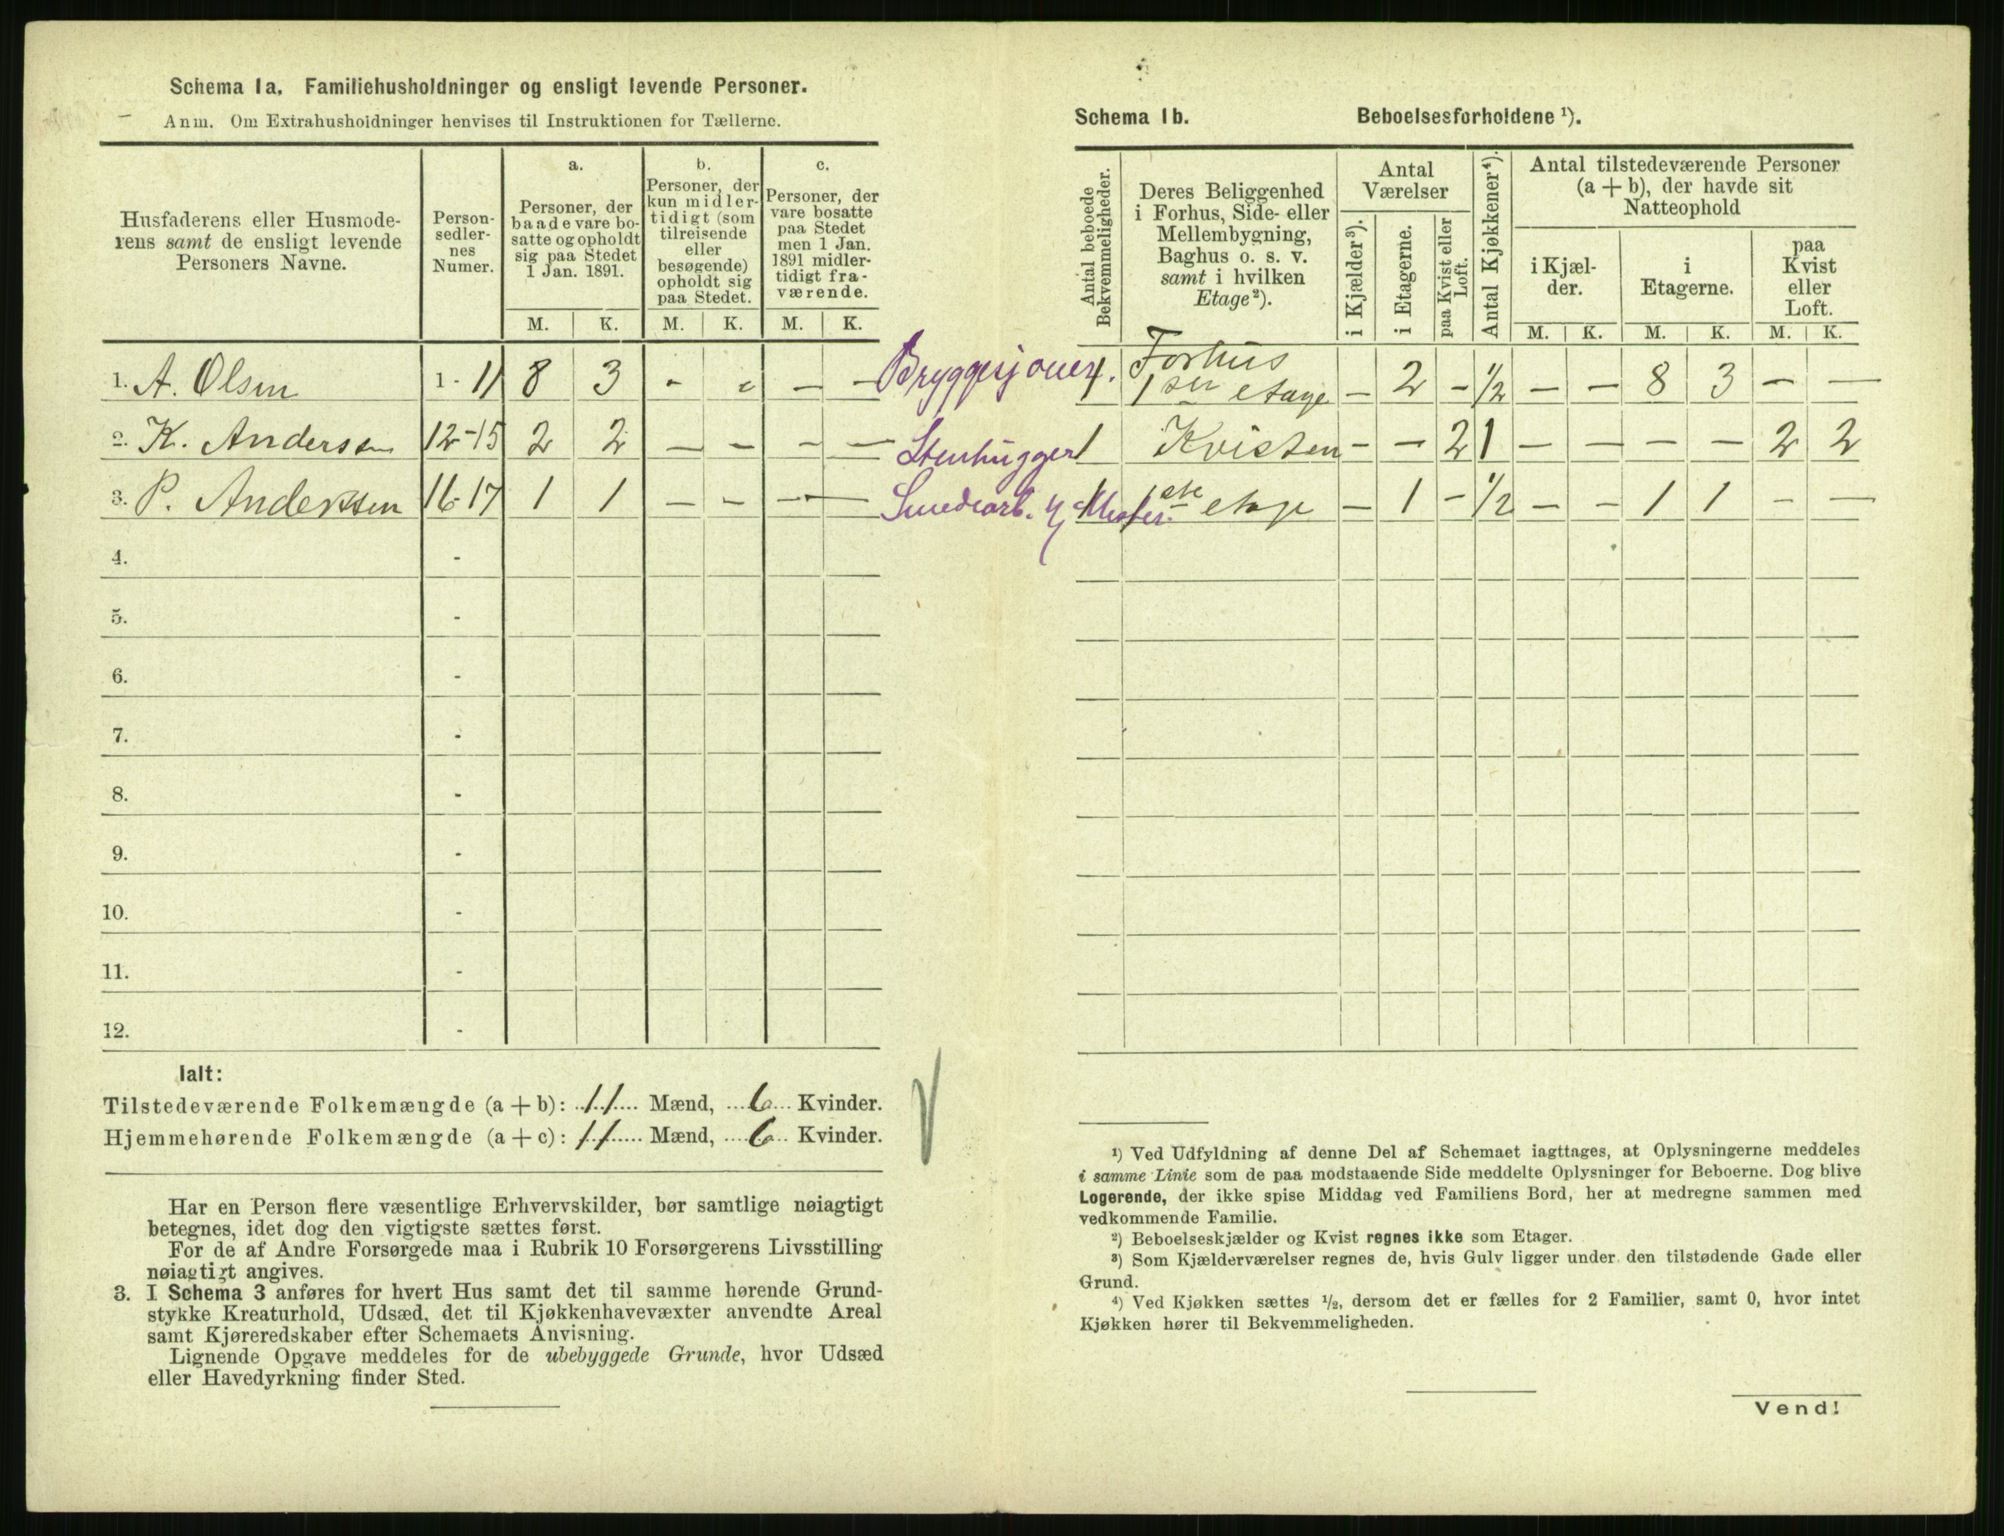 Schema 1a. Familiehusholdninger og ensligt levende Personer.
Anm. Om Extrahusholdninger henvises til Instruktionen for Tællerne.
Husfaderens eller Husmode-
rens samt de ensligt levende
Personers Navne.
Person-
sedler-
nes
Numer.
a.
Personer, der
baade vare bo-
satte og opholdt
sig paa Stedet
1 Jan. 1891.
b.
Personer, der
kun midler-
tidigt (som
tilreisende
eller
besøgende)
opholdt sig
paa Stedet.
c.
Personer, der
vare bosatte
paa Stedet
men 1 Jan.
1891 midler-
tidigt fra-
værende.
M. K. M. K. M. K.
1. A. Olsen 1 - 11 8 3 - - - -
2. K. Andersen 12-15 2 2 - - - -
3. P. Anderssen 16-17 1 1 - - - -
4. -
5. -
6. -
7. -
8. -
9. -
10. -
11. -
12. -
Ialt:
Tilstedeværende Folkemængde (a + b): 11 Mænd, 6 Kvinder.
Hjemmehørende Folkemængde (a + c): 11 Mænd, 6 Kvinder.
Har en Person flere væsentlige Erhvervskilder, bør samtlige nøiagtigt
betegnes, idet dog den vigtigste sættes først.
For de af Andre Forsørgede maa i Rubrik 10 Forsørgerens Livsstilling
nøiagtigt angives.
3. I Schema 3 anføres for hvert Hus samt det til samme hørende Grund-
stykke Kreaturhold, Udsæd, det til Kjøkkenhavevæxter anvendte Areal
samt Kjøreredskaber efter Schemaets Anvisning.
Lignende Opgave meddeles for de ubebyggede Grunde, hvor Udsæd
eller Havedyrkning finder Sted.
Schema 1b. Beboelsesforholdene ¹).
Antal beboede
Bekvemmeligheder.
Deres Beliggenhed
i Forhus, Side- eller
Mellembygning,
Baghus o. s. v.
samt i hvilken
Etage ²).
Antal
Værelser
i Kjælder ³).
i Etagerne.
paa Kvist eller
Loft.
Antal Kjøkkener ⁴).
Antal tilstedeværende Personer
(a + b), der havde sit
Natteophold
i Kjæl-
der.
i
Etagerne.
paa
Kvist
eller
Loft.
M. K. M. K. M. K.
Bryggesjouer 1. Forhus
1ster etage - 2 - 1/2 - - 8 3 - -
Stenhugger 1 Kvisten - - 2 1 - - - - 2 2
Smedearb. 1 1ste etage - 1 - 1/2 - - 1 1 - -
¹) Ved Udfyldning af denne Del af Schemaet iagttages, at Oplysningerne meddeles
i samme Linie som de paa modstaaende Side meddelte Oplysninger for Beboerne. Dog blive
Logerende, der ikke spise Middag ved Familiens Bord, her at medregne sammen med
vedkommende Familie.
²) Beboelseskjælder og Kvist regnes ikke som Etager.
³) Som Kjælderværelser regnes de, hvis Gulv ligger under den tilstødende Gade eller
Grund.
⁴) Ved Kjøkken sættes 1/2, dersom det er fælles for 2 Familier, samt 0, hvor intet
Kjøkken hører til Bekvemmeligheden.
Vend!